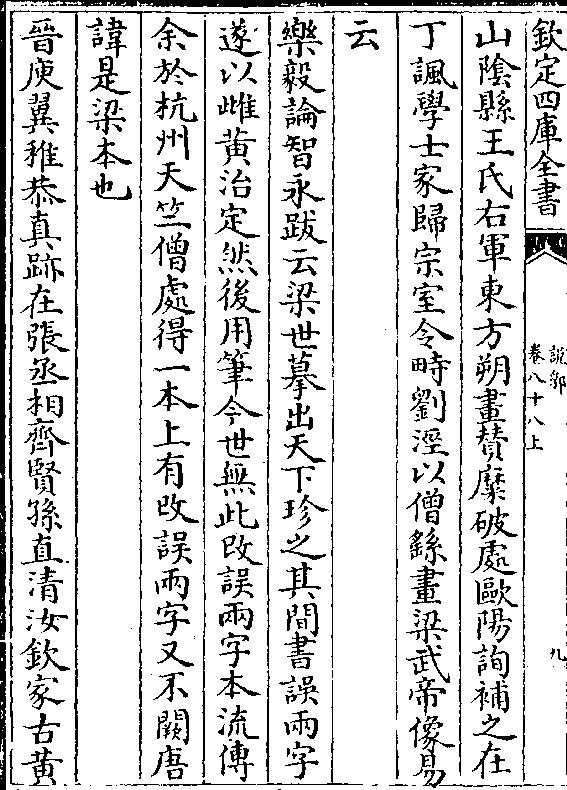 欽定四庫全書
說郛
卷八十八上
九
山陰縣王氏右軍東方朔畫賛糜破處歐陽詢補之在
丁諷學士家歸宗室令畤劉涇以僧繇畫梁武帝像易
云
樂毅論智永跋云梁世摹出天下珍之其間書誤兩字
遂以雌黄治定然後用筆今世無此改誤兩字本流傳
余於杭州天竺僧處得一本上有改誤兩字又不闕唐
諱是梁本也
晉庾翼稚恭真跡在張丞相齊賢孫直清汝欽家古黄